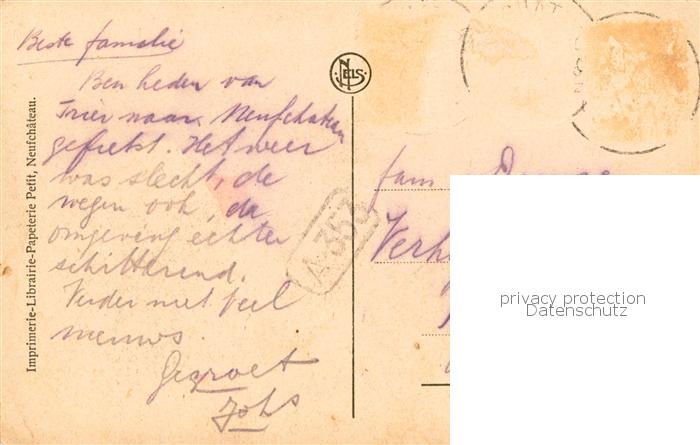 Beste familie
Ben heden van
Trier naar Neufchateau
gefietst. Het weer
was slecht, de
wegen ook, de
omgeving echter
schitterend.
Verder niet veel
nieuws.
Gegroet
Johs
Imprimerie-Librairie-Papeterie Petit, Neufchâteau.
NELS
A353
fam
privacy protection
Datenschutz